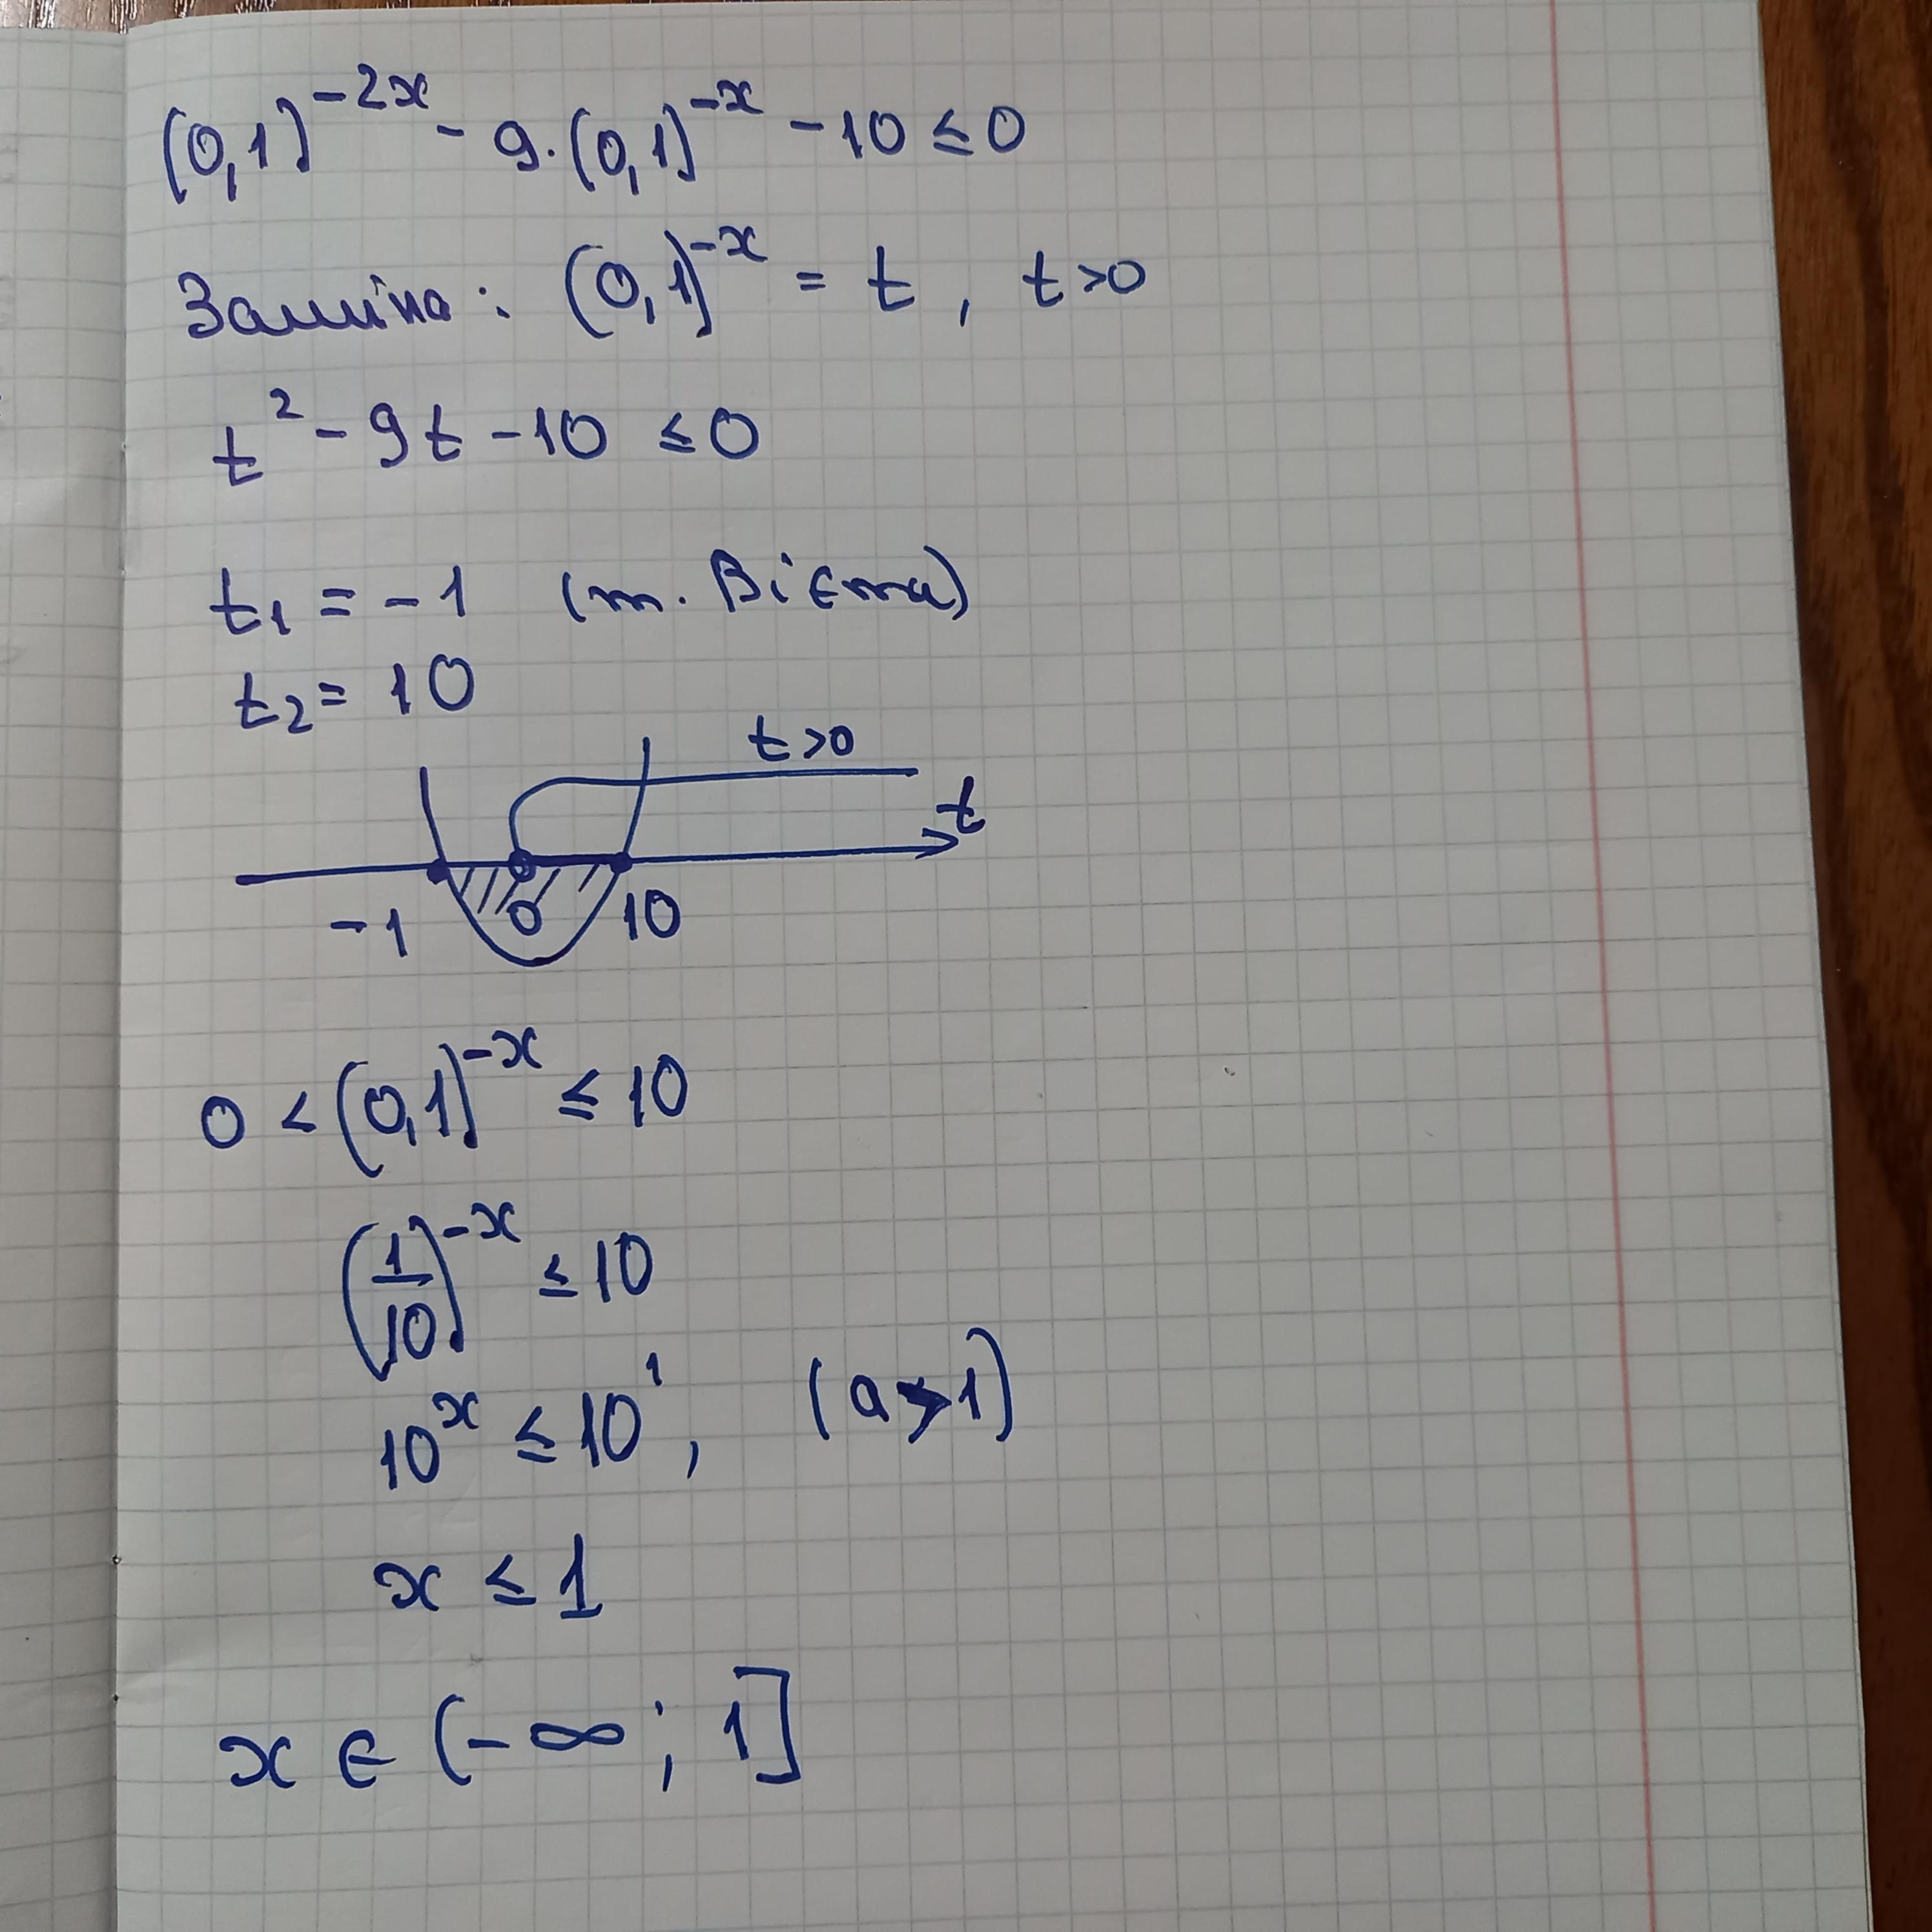 (0,1)^{-2x} - 9·(0,1)^{-x} - 10 ≤ 0
Заміна: (0,1)^{-x} = t, t>0
t² - 9t - 10 ≤ 0
t₁ = -1 (т. Вієта)
t₂ = 10
t>0
t
-1 0 10
0 < (0,1)^{-x} ≤ 10
(1/10)^{-x} ≤ 10
10^x ≤ 10^1, (a>1)
x ≤ 1
x ∈ (-∞; 1]